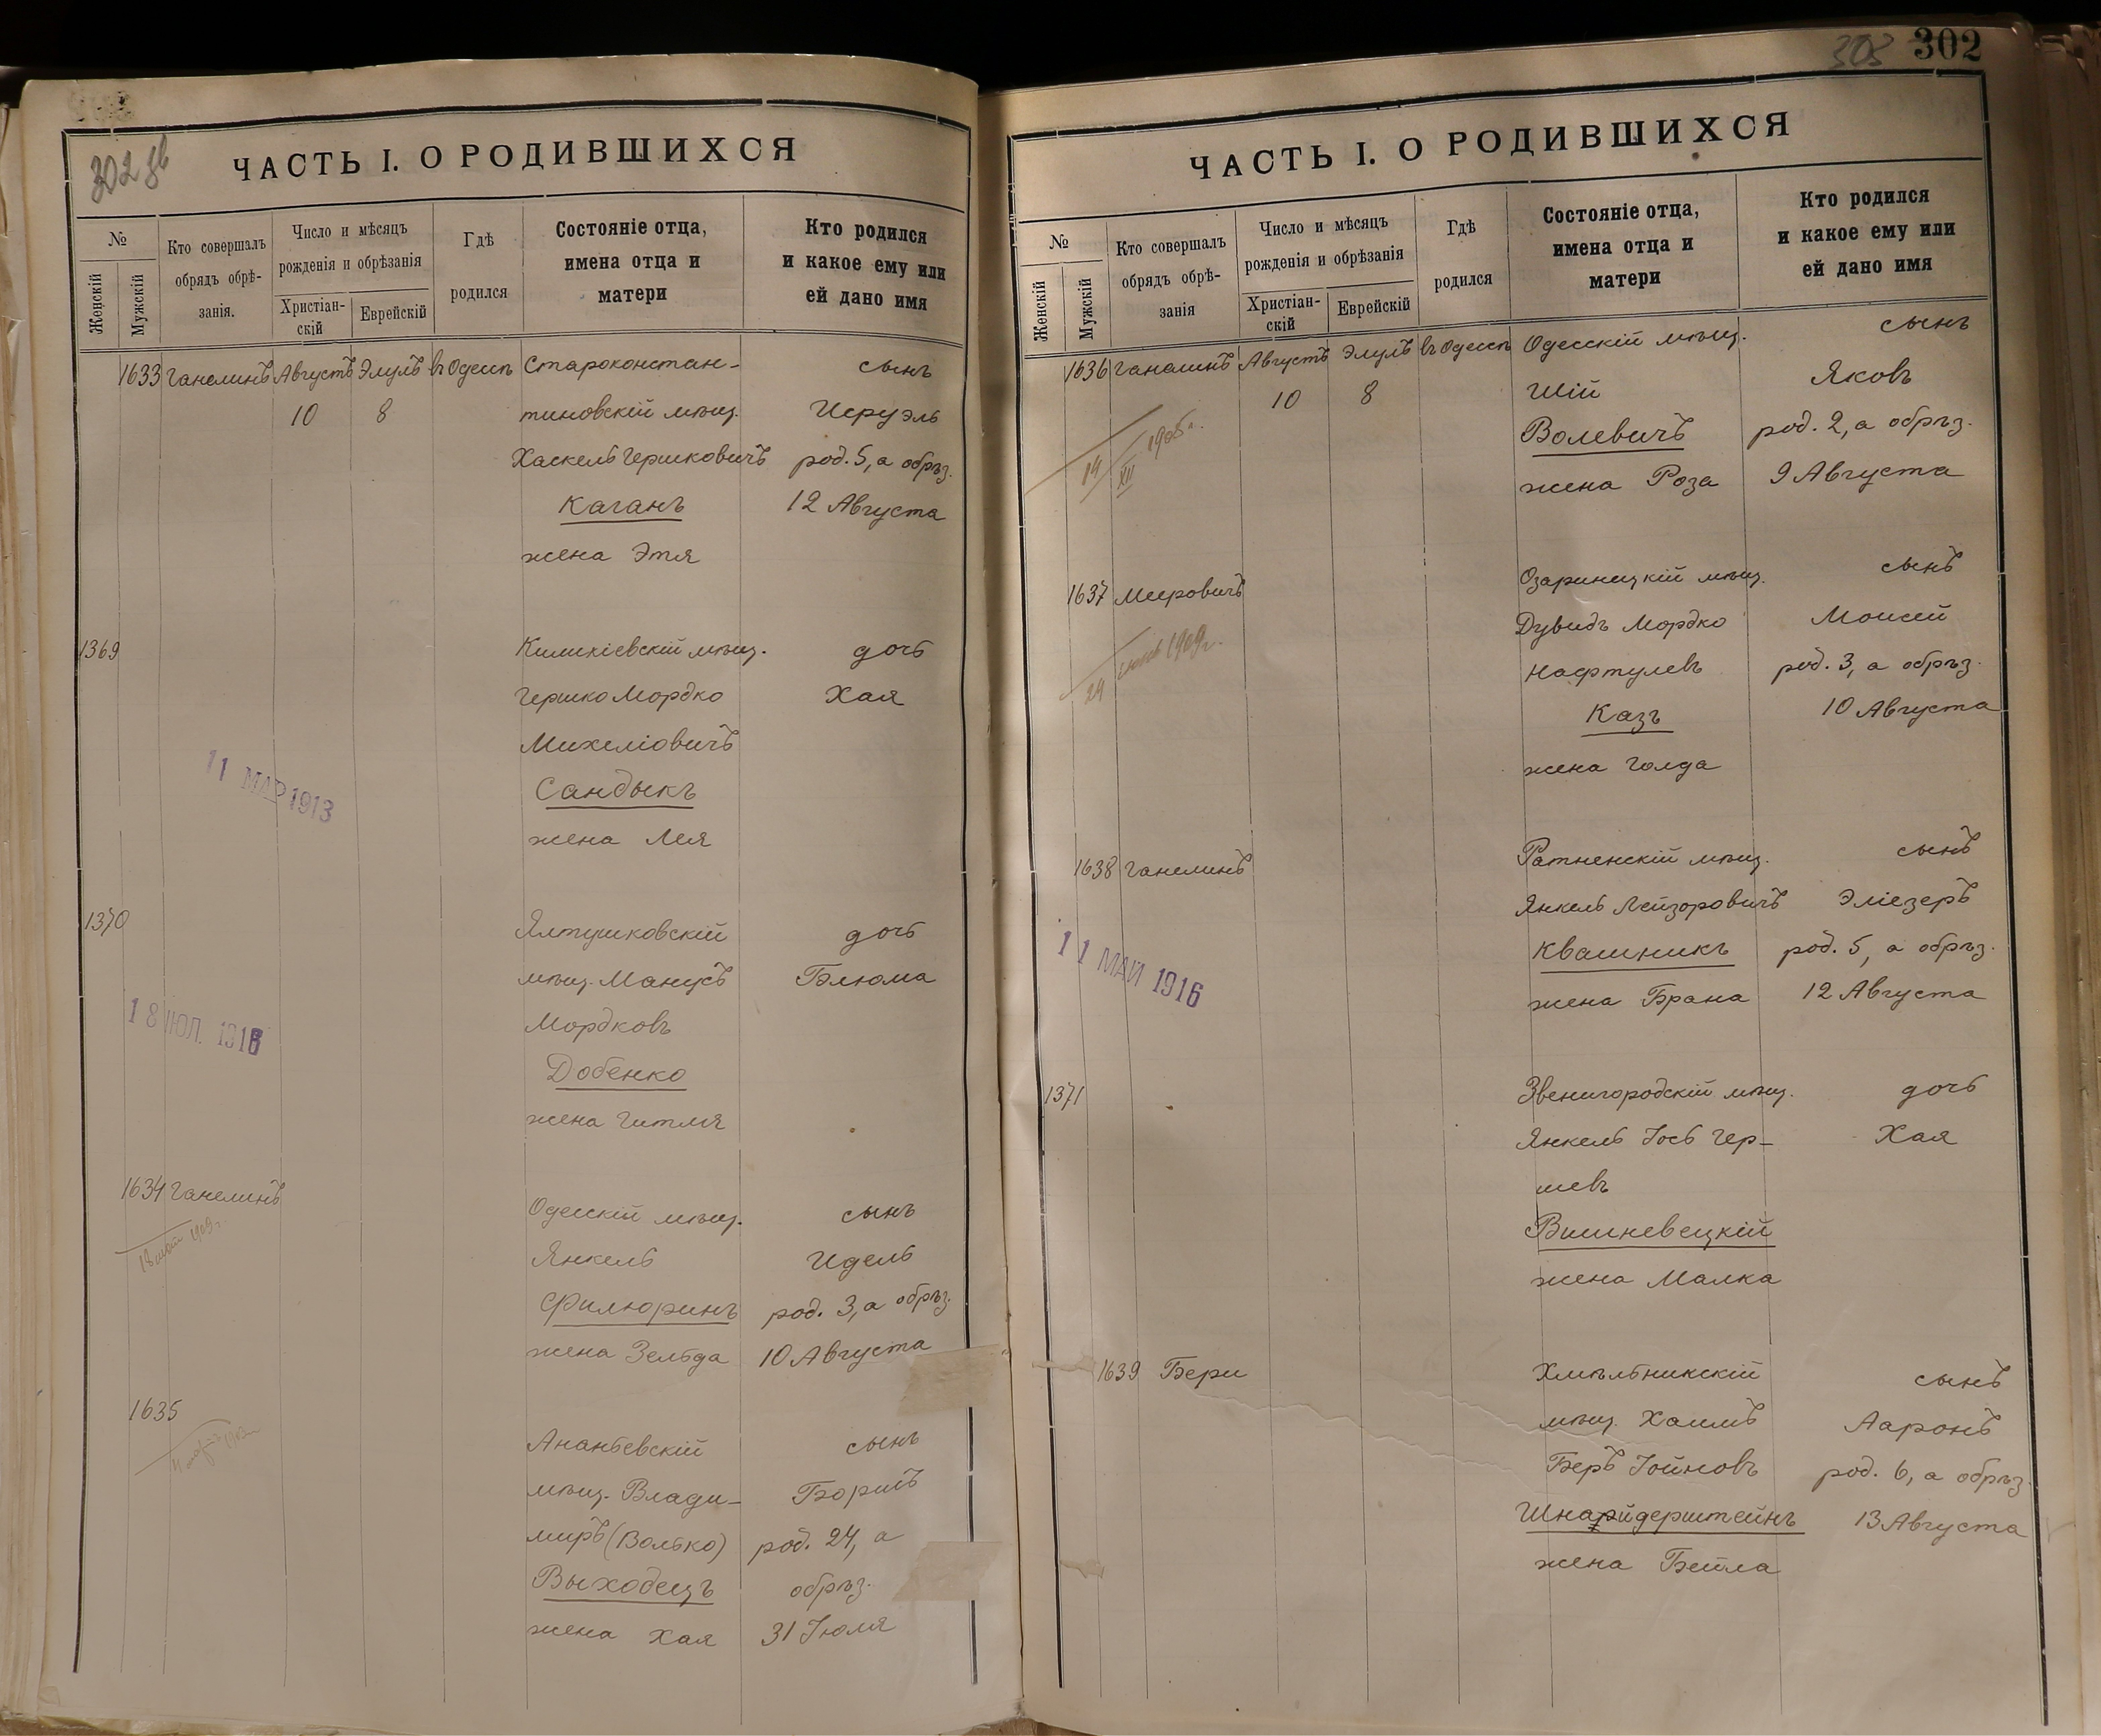 302 зв
ЧАСТЬ I. О РОДИВШИХСЯ
№
Женскій
Мужскій
Кто совершалъ
обрядъ обрѣ-
занія.
Число и мѣсяцъ
рожденія и обрѣзанія
Христіан-
скій
Еврейскій
Гдѣ
родился
Состояніе отца,
имена отца и
матери
Кто родился
и какое ему или
ей дано имя
1633 Ганелинъ Августъ Элулъ въ Одессѣ Староконстан- сынъ
10 8 тиновскій мѣщ. Исруэль
Хаскель Гершковичъ род. 5, а обрѣз.
Каганъ 12 Августа
жена Этя
1369 Киликіевскій мѣщ. дочь
Гершко Мордко Хая
Михеліовичъ
11 МАР 1913
Сандыкъ
жена Лея
1370 Ялтушковскій дочь
мѣщ. Манусъ Блюма
18 ИЮЛ. 1916
Мордковъ
Добенко
жена Гитля
1634 Ганелинъ Одесскій мѣщ. сынъ
1909 г.
Янкель Идель
Филюринъ род. 3, а обрѣз.
жена Зельда 10 Августа
1635 Ананьевскій сынъ
мѣщ. Влади- Борисъ
миръ (Волько) род. 24, а
Выходецъ обрѣз.
жена Хая 31 Іюля
303 302
ЧАСТЬ I. О РОДИВШИХСЯ
№
Женскій
Мужскій
Кто совершалъ
обрядъ обрѣ-
занія
Число и мѣсяцъ
рожденія и обрѣзанія
Христіан-
скій
Еврейскій
Гдѣ
родился
Состояніе отца,
имена отца и
матери
Кто родился
и какое ему или
ей дано имя
1636 Ганелинъ Августъ Элулъ въ Одессѣ Одесскій мѣщ. сынъ
10 8 Шій Яковъ
14/XII 1905 г.
Волевичъ род. 2, а обрѣз.
жена Роза 9 Августа
1637 Мееровичъ Озаринецкій мѣщ. сынъ
24 1909 г.
Дувидъ Мордко Моисей
Нафтулевъ род. 3, а обрѣз.
Казъ 10 Августа
жена Голда
1638 Ганелинъ Ратненскій мѣщ. сынъ
Янкель Лейзоровичъ Эліезеръ
11 МАЙ 1916
Квашникъ род. 5, а обрѣз.
жена Брана 12 Августа
1371 Звенигородскій мѣщ. дочь
Янкель Іось Гер- Хая
шевъ
Вишневецкій
жена Малка
1639 Бери Хмѣльникскій сынъ
мѣщ. Хаимъ Ааронъ
Беръ Іойновъ род. 6, а обрѣз.
Шнайдерштейнъ 13 Августа
жена Бейла